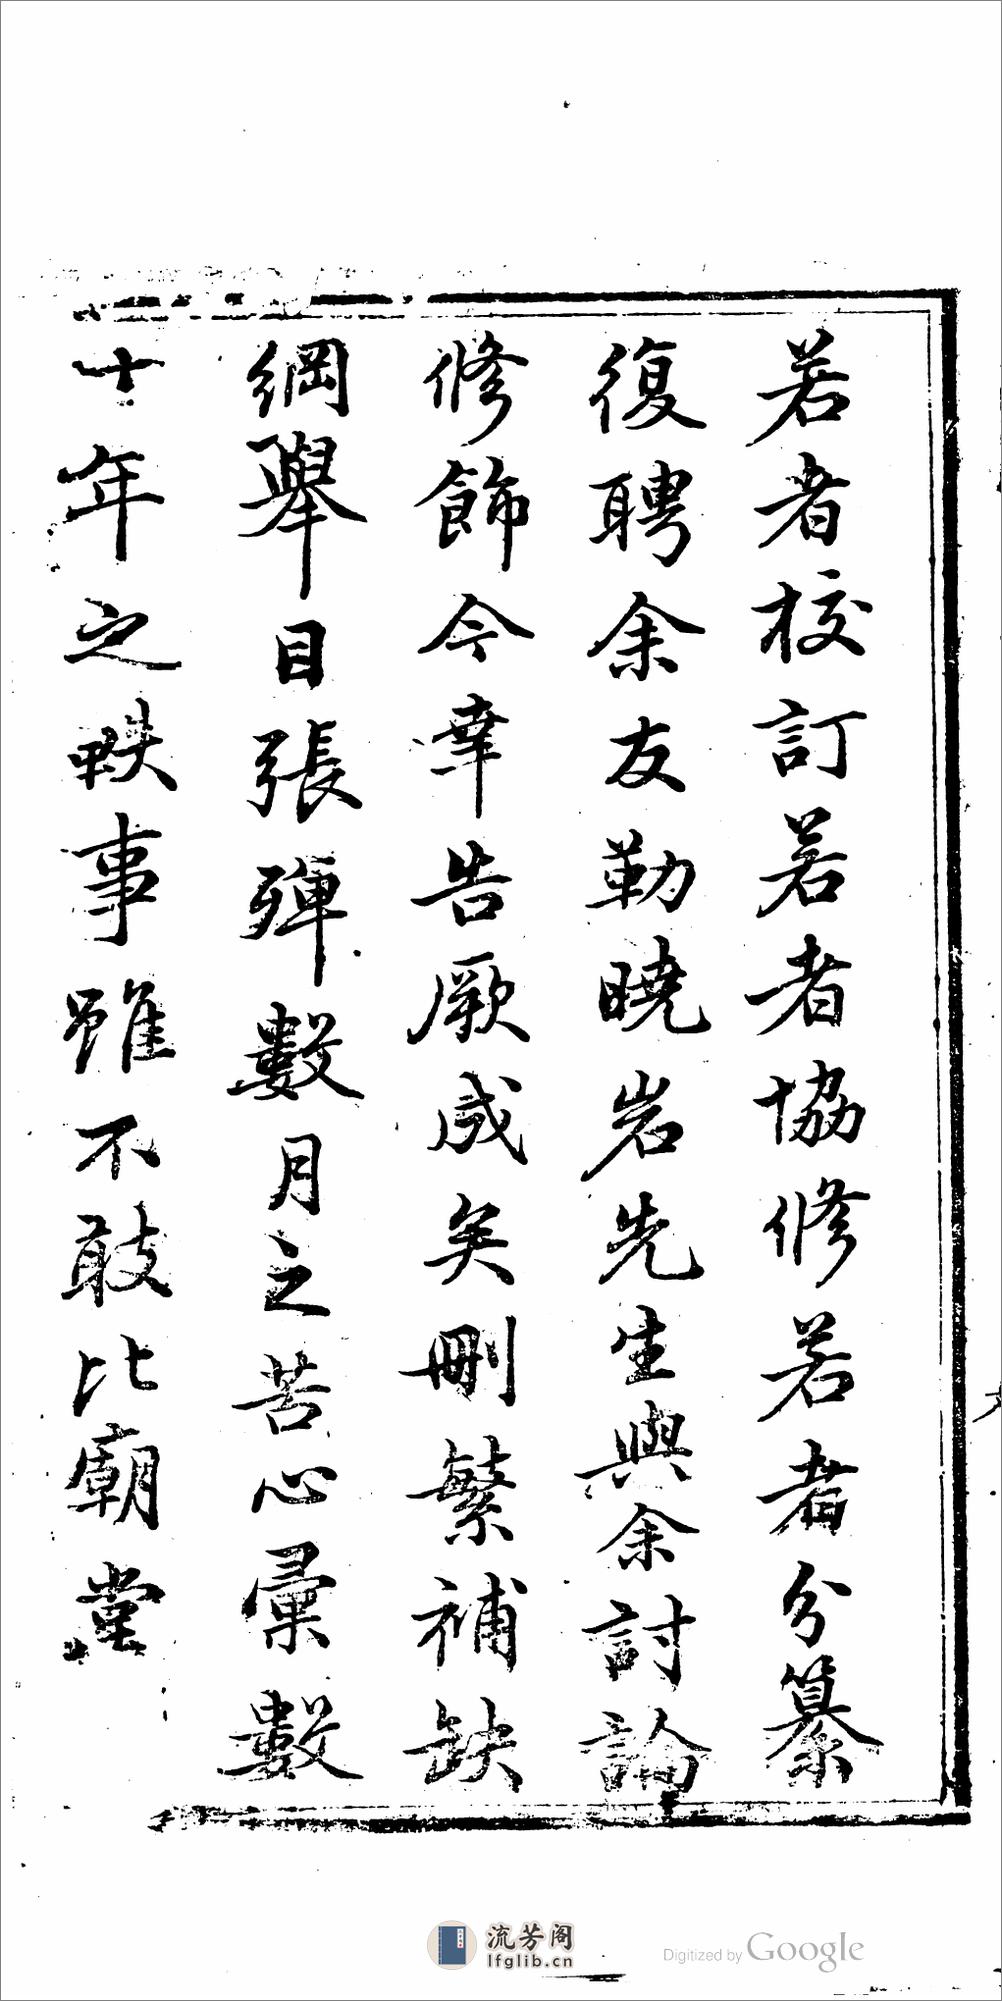 若者校訂若者協修若者分纂
復聘余友勒曉岩先生與余討論
修飾今幸告厥成矣刪繁補缺
綱舉目張殫數月之苦心彙數
十年之軼事雖不敢比廟堂
流芳阁
lfglib.cn
Digitized by Google